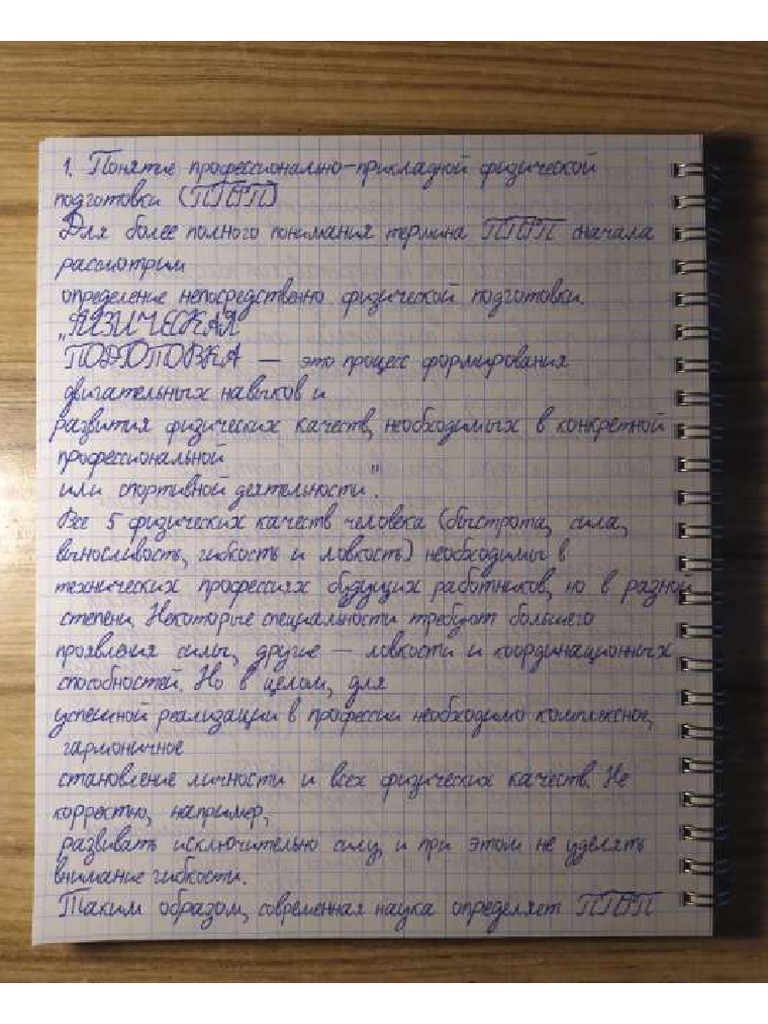 1. Понятие профессионально-прикладной физической
подготовки (ППФП)
Для более полного понимания термина ППФП сначала
рассмотрим
определение непосредственно физической подготовки.
„ФИЗИЧЕСКАЯ
ПОДГОТОВКА — это процесс формирования
двигательных навыков и
развития физических качеств, необходимых в конкретной
профессиональной
или спортивной деятельности".
Все 5 физических качеств человека (быстрота, сила,
выносливость, гибкость и ловкость) необходимы в
технических профессиях будущих работников, но в разной
степени. Некоторые специальности требуют большего
проявления силы, другие — ловкости и координационных
способностей. Но в целом, для
успешной реализации в профессии необходимо комплексное,
гармоничное
становление личности и всех физических качеств. Не
корректно, например,
развивать исключительно силу, и при этом не уделять
внимание гибкости.
Таким образом, современная наука определяет ППФП